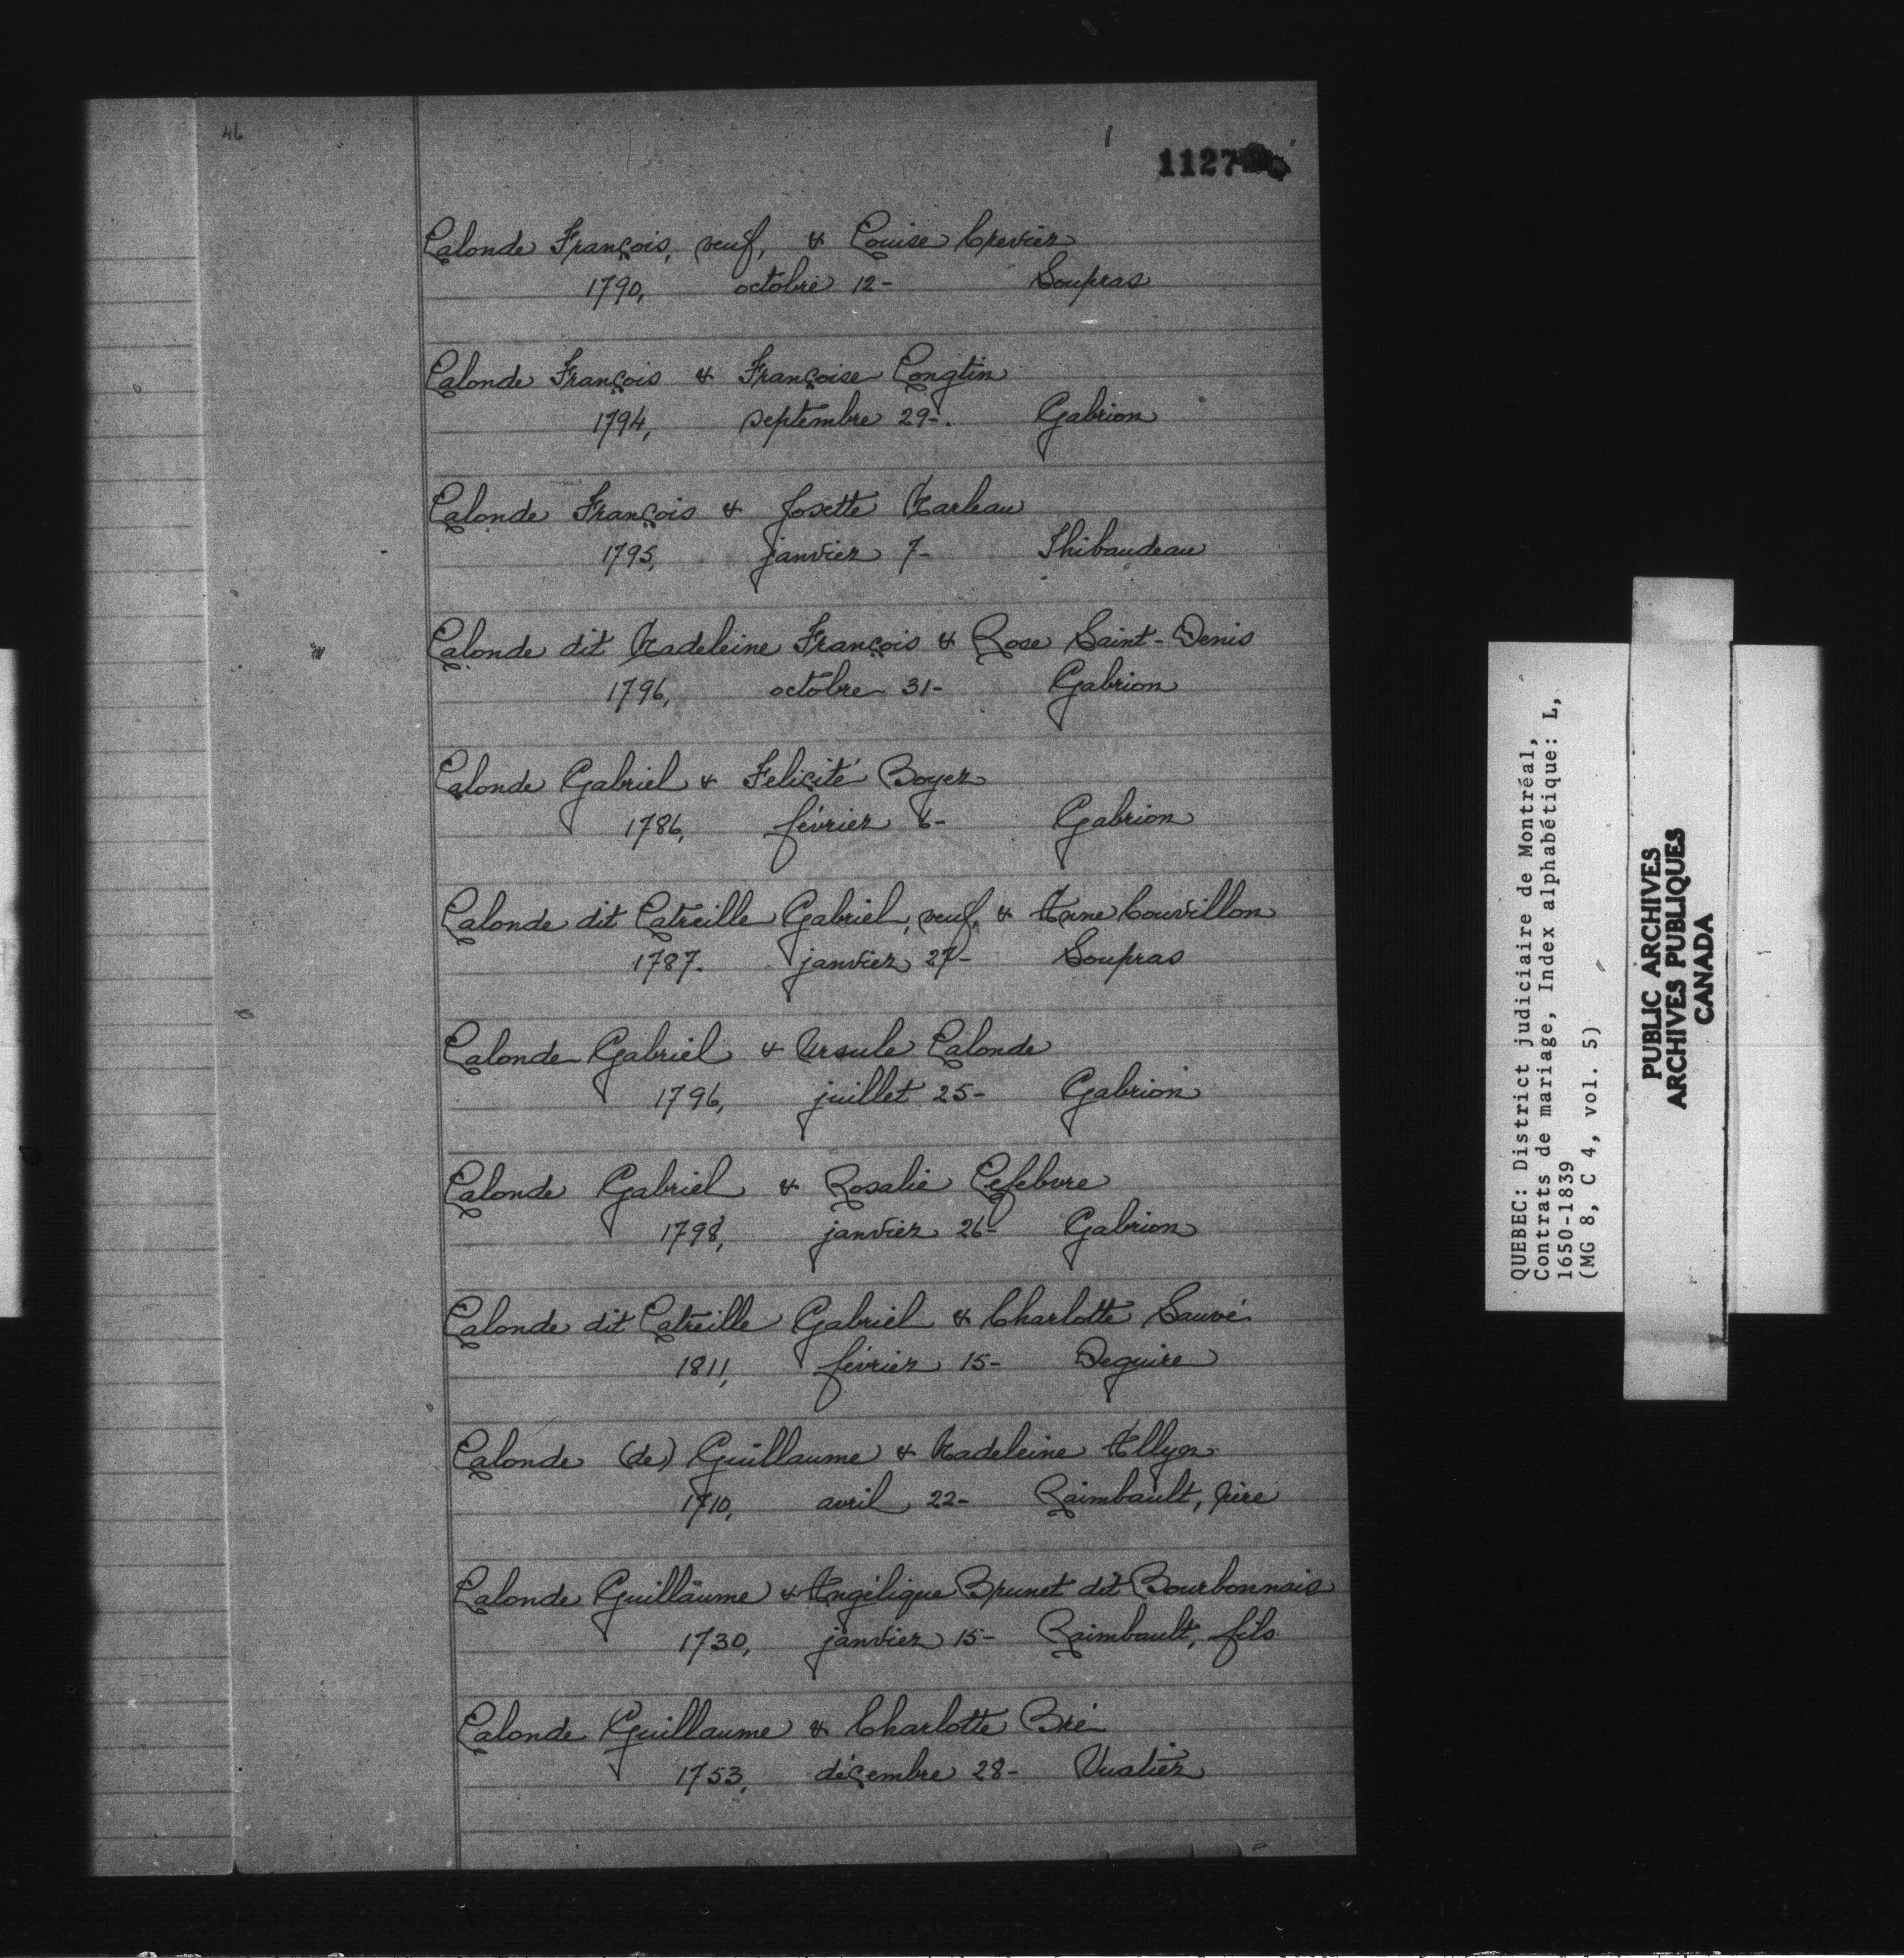 46
1127
Lalonde François, veuf, & Louise Crevier
1790, octobre 12- Soupras
Lalonde François & Françoise Longtin
1794, septembre 29-. Gabrion
Lalonde François & Josette Marleau
1795, janvier 7- Thibaudeau
Lalonde dit Madeleine François & Rose Saint-Denis
1796, octobre 31- Gabrion
Lalonde Gabriel & Felicité Boyer
1786, février 6- Gabrion
Lalonde dit Latreille Gabriel, veuf, & Anne Couvillon
1787. janvier 27- Soupras
Lalonde Gabriel & Ursule Lalonde
1796, juillet 25- Gabrion
Lalonde Gabriel & Rosalie Lefebvre
1798, janvier 26- Gabrion
Lalonde dit Latreille Gabriel & Charlotte Sauvé
1811, février 15- Deguire
Lalonde (de) Guillaume & Madeleine Allyn
1710, avril 22- Raimbault, père
Lalonde Guillaume & Angélique Brunet dit Bourbonnais
1730, janvier 15- Raimbault, fils
Lalonde Guillaume & Charlotte Bré
1753, décembre 28- Vuatier
QUEBEC: District judiciaire de Montréal,
Contrats de mariage, Index alphabétique: L,
1650-1839
(MG 8, C 4, vol. 5)
PUBLIC ARCHIVES
ARCHIVES PUBLIQUES
CANADA